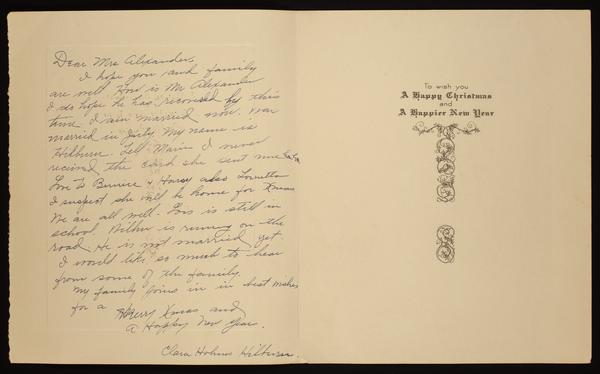 Dear Mrs Alexander,
I hope you and family
are well. How is Mr Alexander
I do hope he has recovered by this
time I am married now. Was
married in July My name is
Hilburn. Tell Marie I never
received the card she sent me
Love to Bernice & Harry also Loretta
I suspect she will be home for Xmas
We are all well. Lois is still in
school Wilbur is running on the
road. He is not married yet.
I would like so much to hear
from some of the family.
My family joins in in best wishes
for a Merry Xmas and
a Happy New Year.
Clara Holmes Hilburn
To wish you
A Happy Christmas
and
A Happier New Year